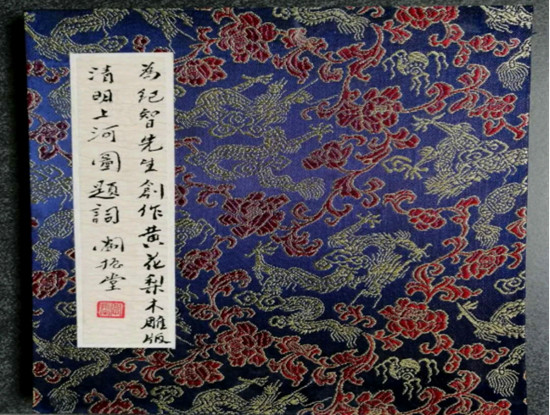 為紀智先生創作黄花梨木雕版
清明上河圖題詞 閻振堂